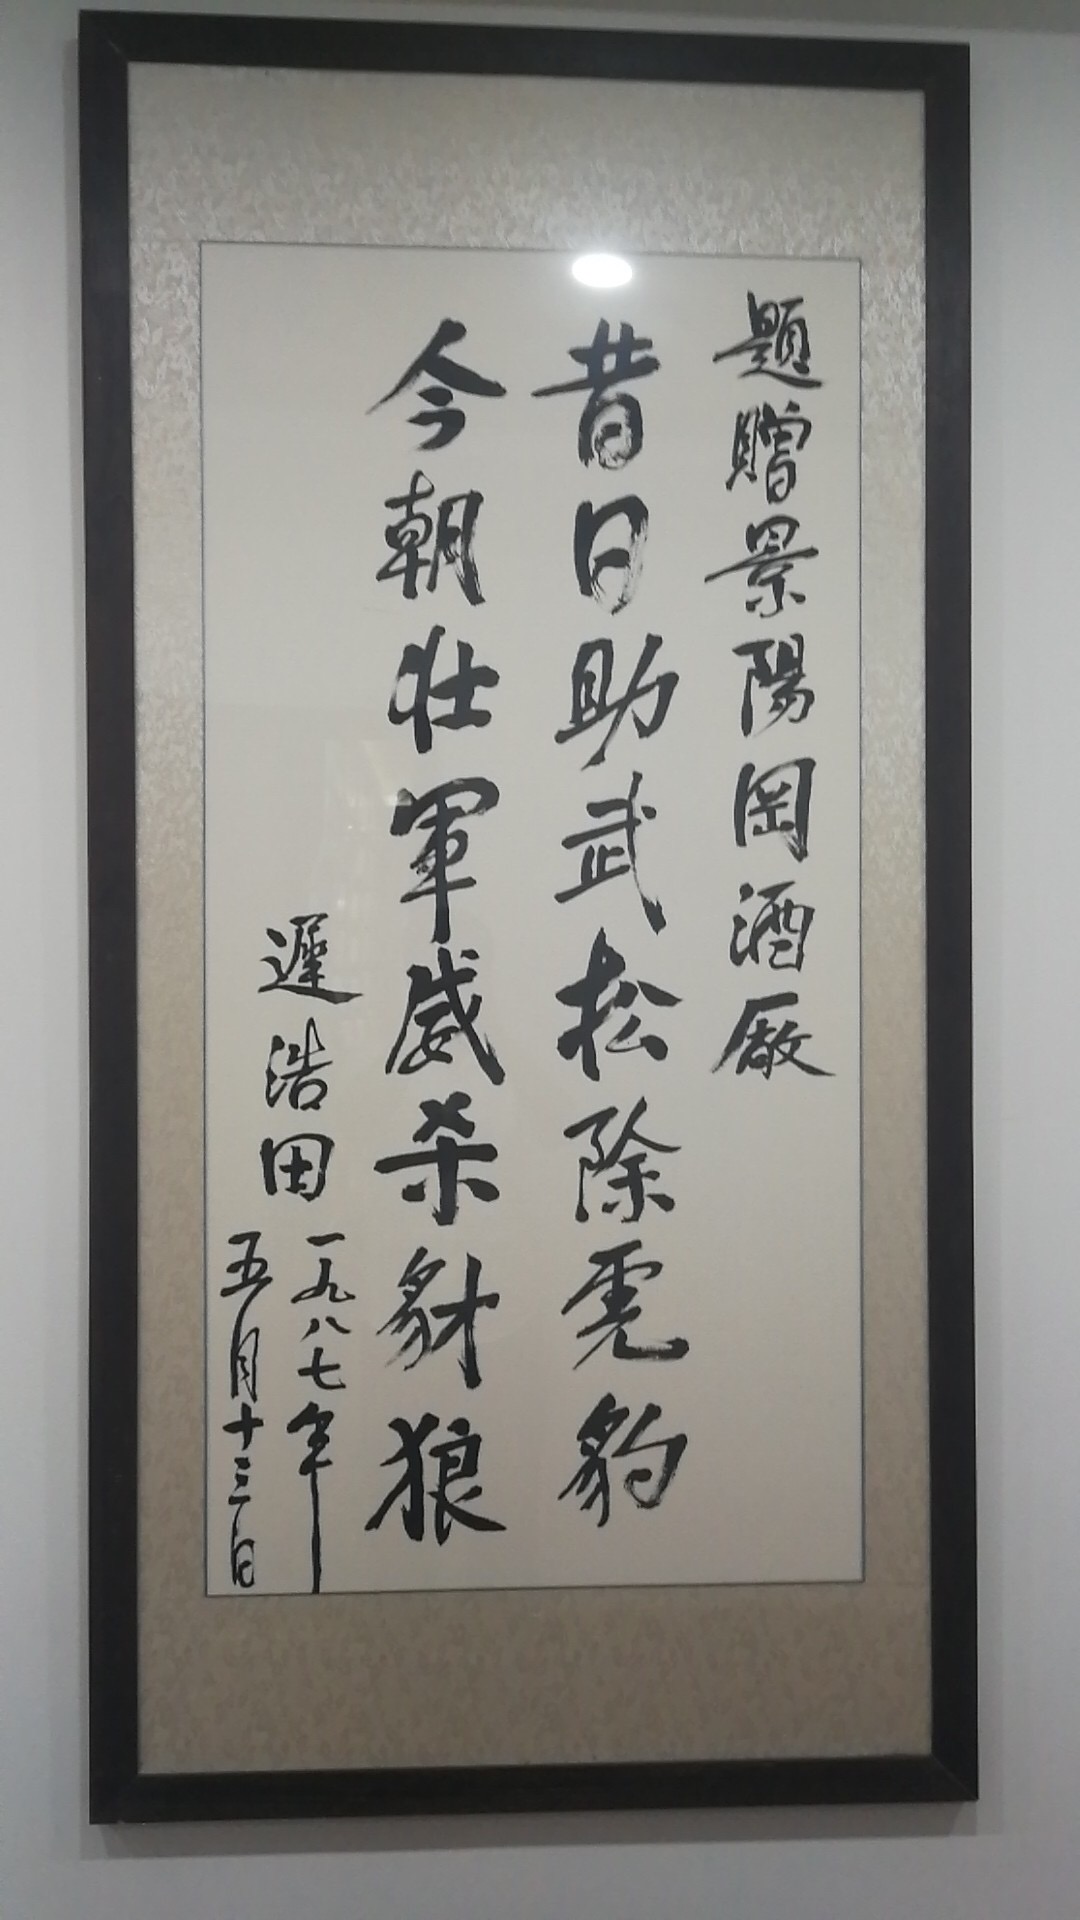 題贈景陽岡酒廠
昔日助武松除虎豹
今朝壮軍威杀豺狼
遲浩田
一九八七年
五月十三日